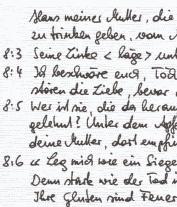 Haus meiner Mutter, die
zu trinken geben, vom
8:3 Seine Linke < läge > unt
8:4 Ich beschwöre euch, Töc
stören die Liebe, bevor
8:5 Wer ist sie, die da herau
gelehnt? Unter dem Apf
deine Mutter, dort empfi
8:6 « Leg mich wie ein Siege
Denn stark wie der Tod i
Ihre Gluten sind Feuer